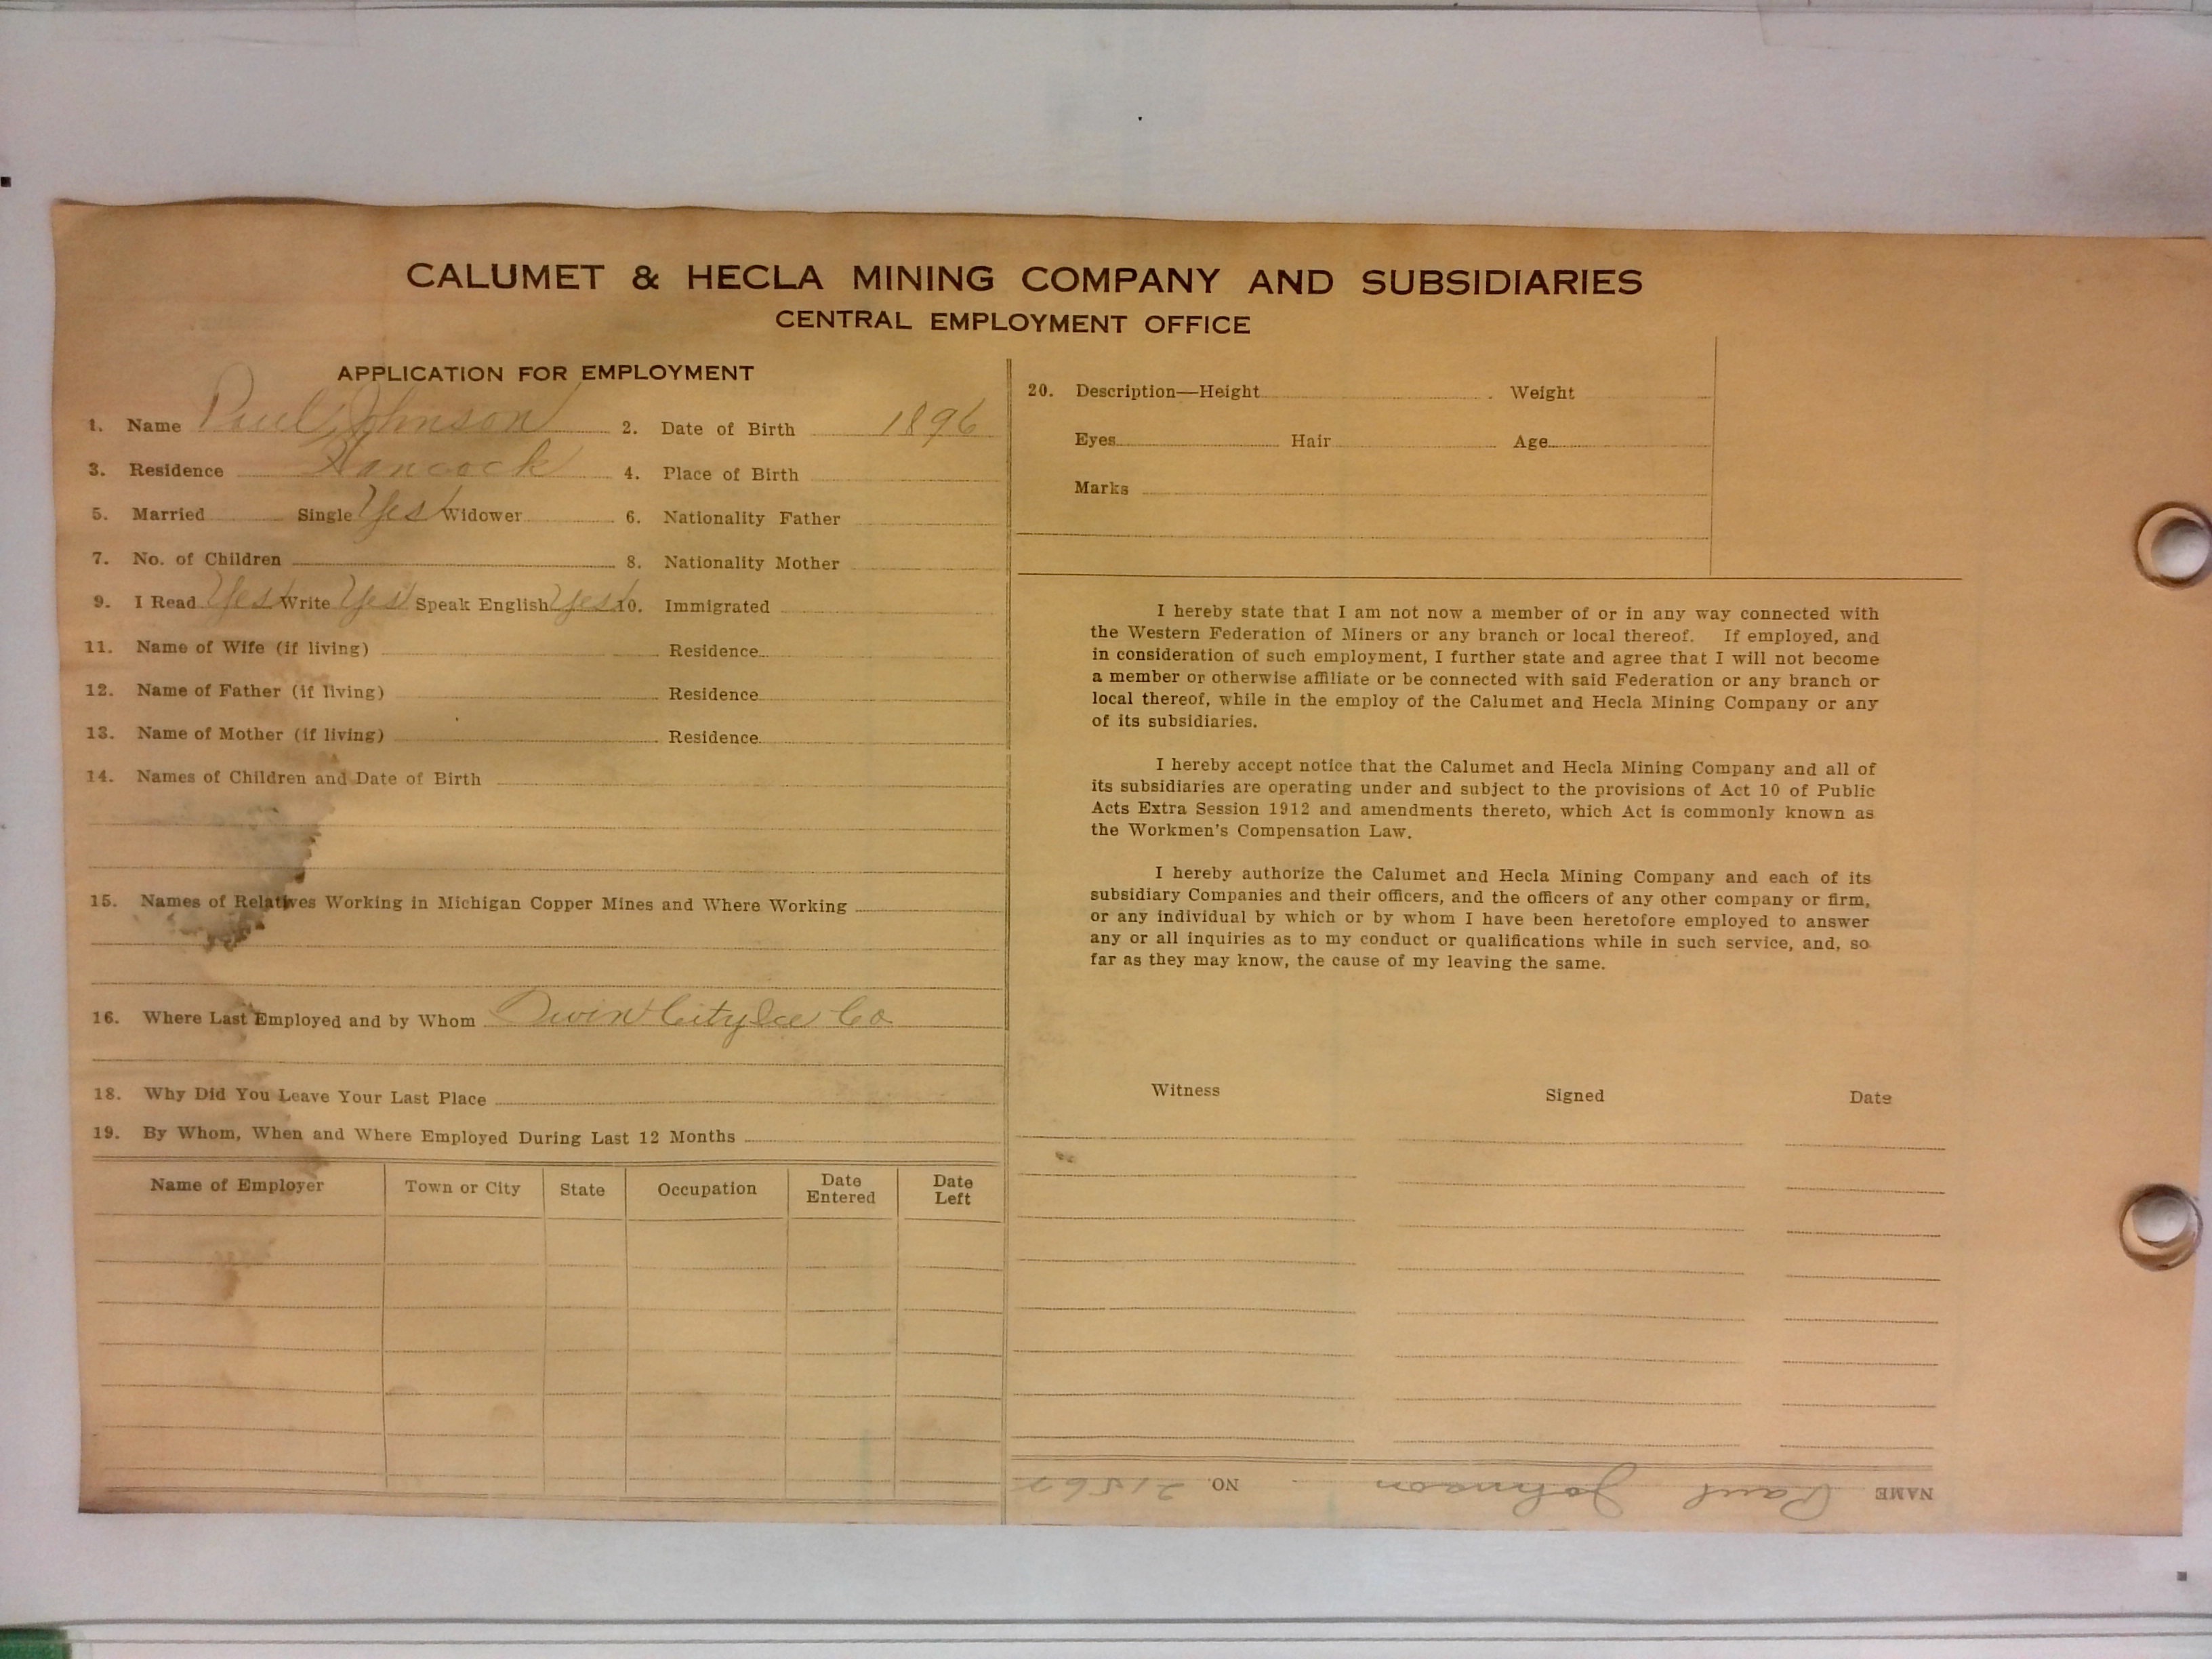 CALUMET & HECLA MINING COMPANY AND SUBSIDIARIES
CENTRAL EMPLOYMENT OFFICE
APPLICATION FOR EMPLOYMENT
1. Name Paul Johnson 2. Date of Birth 1896
3. Residence Hancock 4. Place of Birth
5. Married Single Yes Widower 6. Nationality Father
7. No. of Children 8. Nationality Mother
9. I Read Yes Write Yes Speak English Yes 10. Immigrated
11. Name of Wife (if living) Residence
12. Name of Father (if living) Residence
13. Name of Mother (if living) Residence
14. Names of Children and Date of Birth
15. Names of Relatives Working in Michigan Copper Mines and Where Working
16. Where Last Employed and by Whom Twin City Ice Co
18. Why Did You Leave Your Last Place
19. By Whom, When and Where Employed During Last 12 Months
Name of Employer Town or City State Occupation Date Entered Date Left
20. Description—Height Weight
Eyes Hair Age
Marks
I hereby state that I am not now a member of or in any way connected with
the Western Federation of Miners or any branch or local thereof. If employed, and
in consideration of such employment, I further state and agree that I will not become
a member or otherwise affiliate or be connected with said Federation or any branch or
local thereof, while in the employ of the Calumet and Hecla Mining Company or any
of its subsidiaries.
I hereby accept notice that the Calumet and Hecla Mining Company and all of
its subsidiaries are operating under and subject to the provisions of Act 10 of Public
Acts Extra Session 1912 and amendments thereto, which Act is commonly known as
the Workmen's Compensation Law.
I hereby authorize the Calumet and Hecla Mining Company and each of its
subsidiary Companies and their officers, and the officers of any other company or firm,
or any individual by which or by whom I have been heretofore employed to answer
any or all inquiries as to my conduct or qualifications while in such service, and, so
far as they may know, the cause of my leaving the same.
Witness Signed Date
NAME Paul Johnson NO.